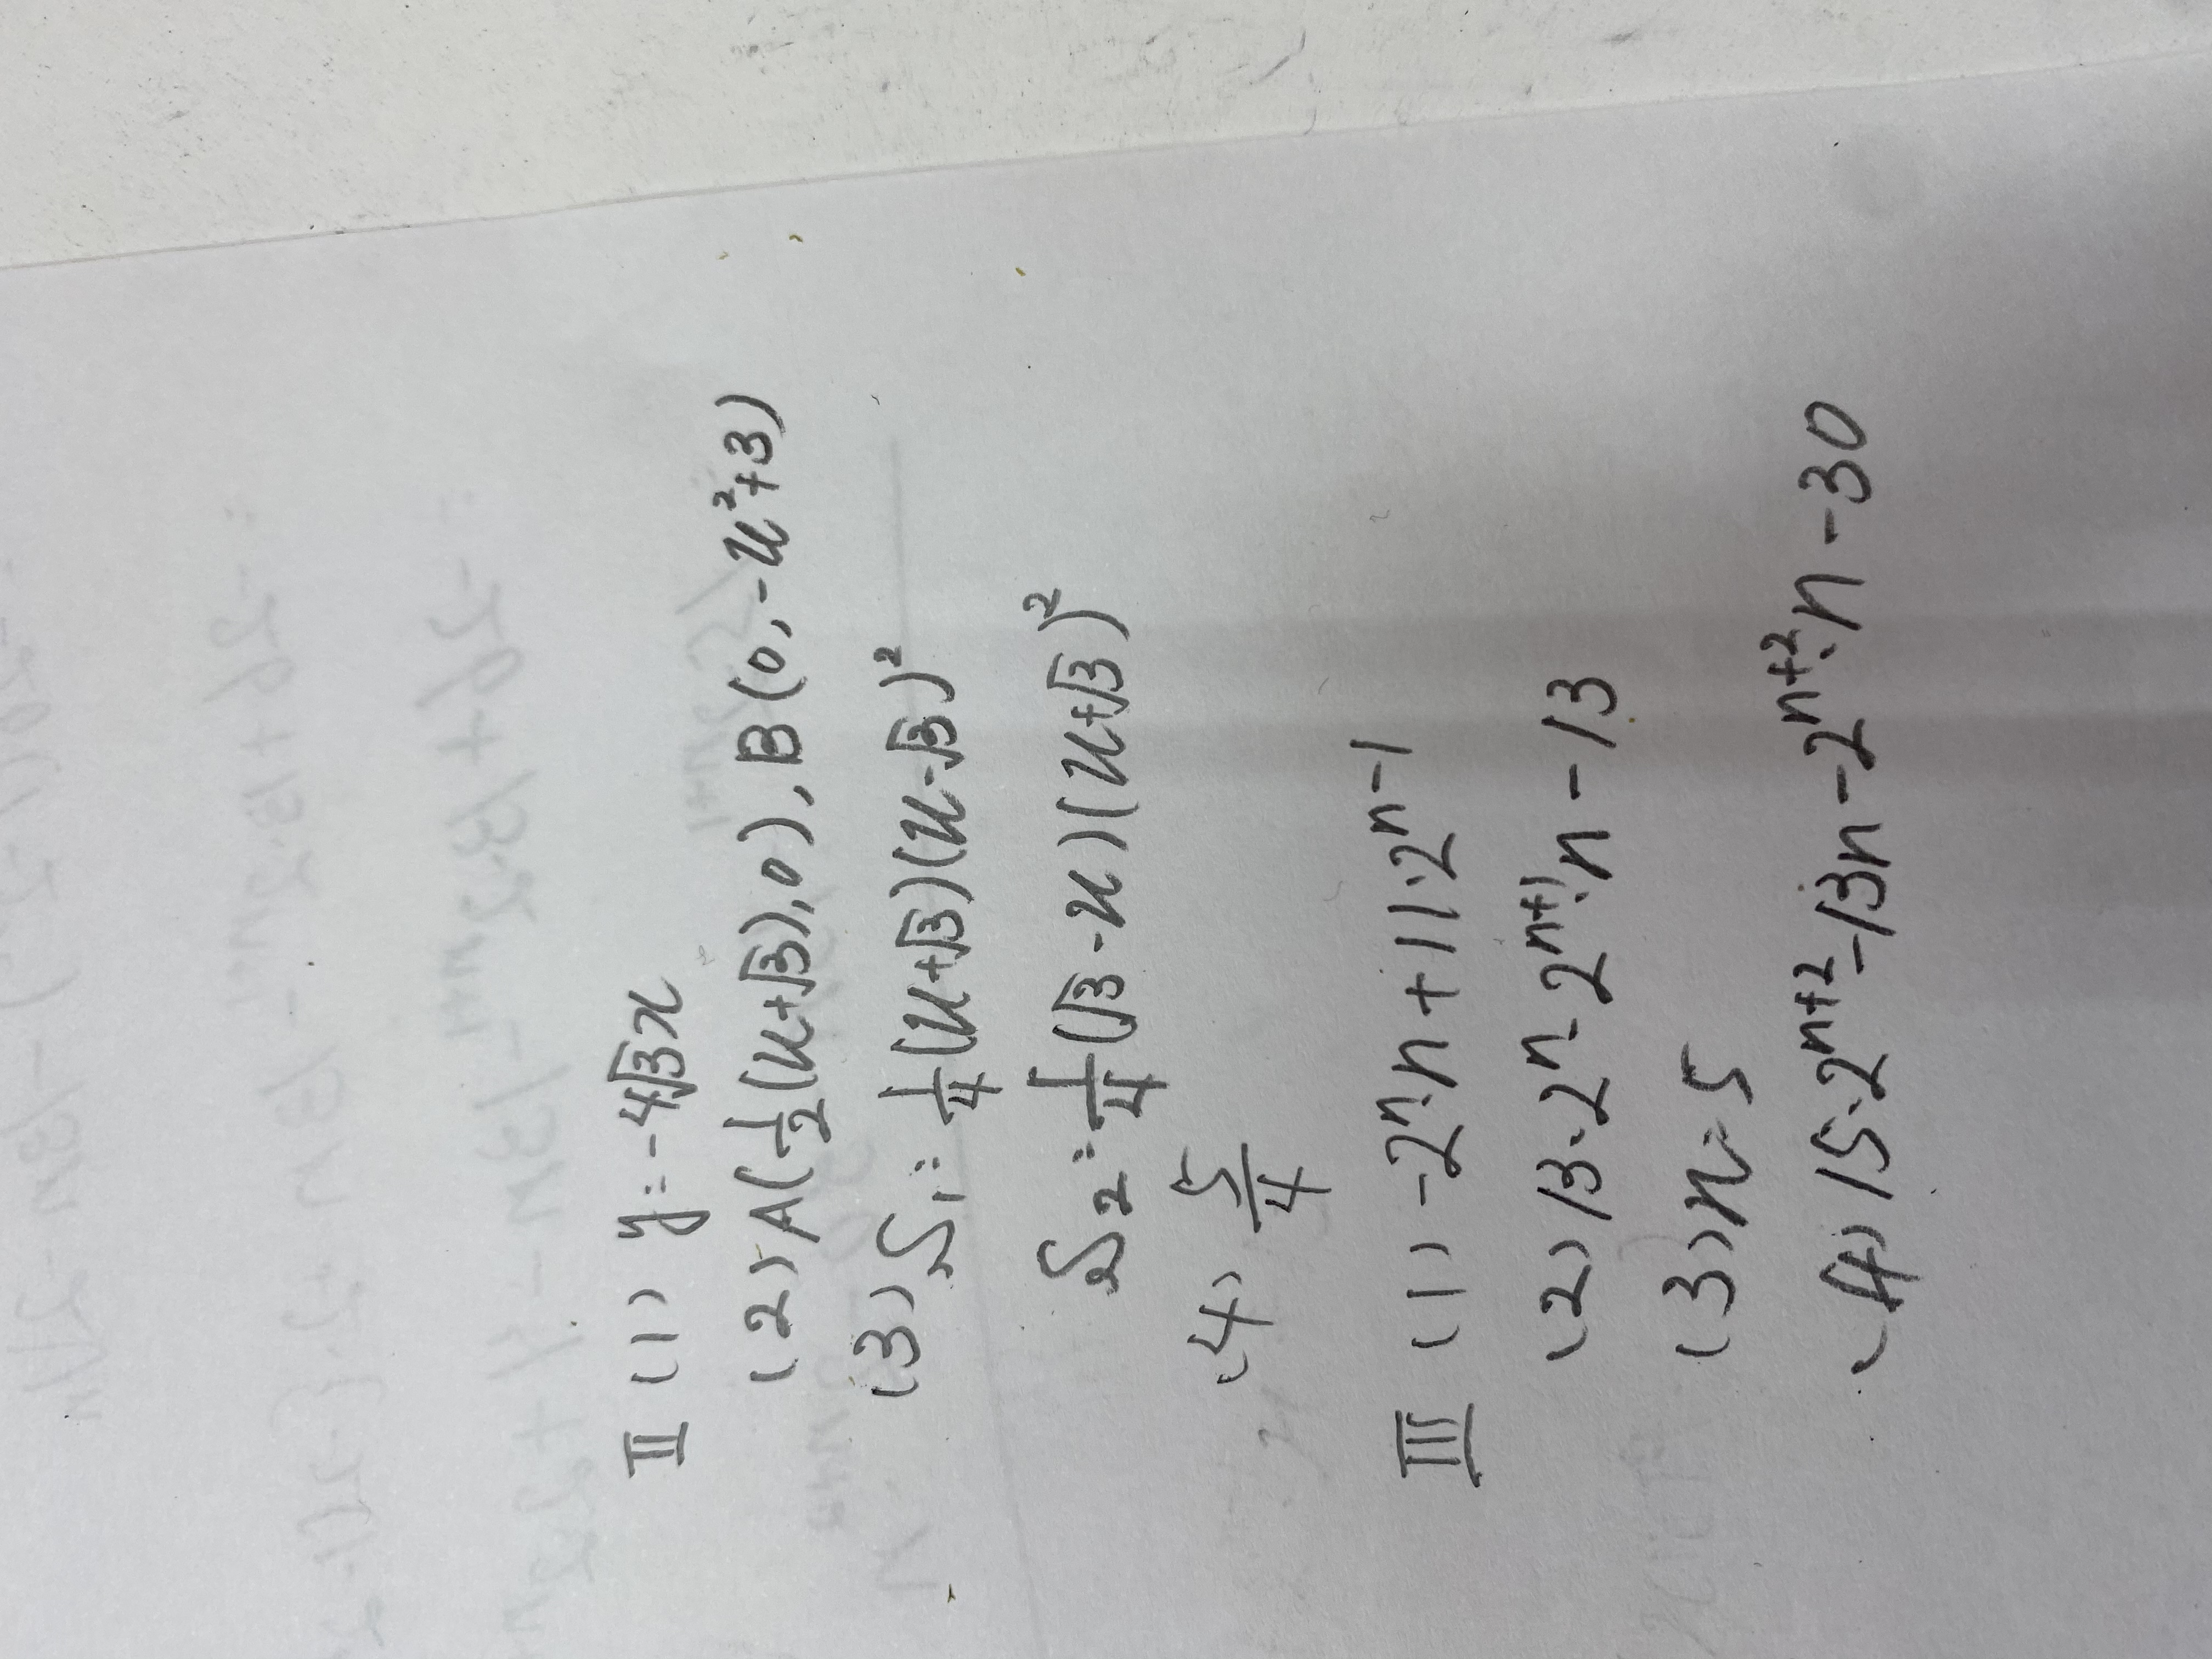 II (1) y=-4√3x
(2) A(1/2(u+√3),0), B(0,-u²+3)
(3) S₁=1/4(u+√3)(u-√3)²
S₂=1/4(√3-u)(u+√3)²
(4) 5/4
III (1) -2ⁿ·n+11·2ⁿ-1
(2) 13·2ⁿ-2ⁿ⁺¹·n-13
(3) n=5
(4) 15·2ⁿ⁺²-13n-2ⁿ⁺²·n-30